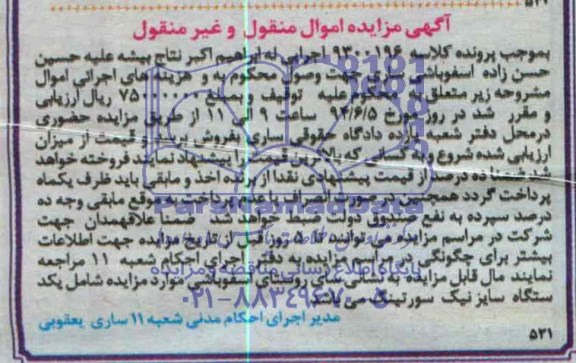 ۵۲۱
آگهی مزایده اموال منقول و غیر منقول
بموجب پرونده کلاسه ۹۳۰۰۱۹۶ اجرایی له ابراهیم اکبر نتاج بیشه علیه حسین
حسن زاده اسفوباشی ساری جهت وصول محکوم به و هزینه های اجرائی اموال
مشروحه زیر متعلق به محکوم علیه توقیف و بمبلغ ۷۵۰۰۰۰۰۰ ریال ارزیابی
و مقرر شد در روز مورخ ۹۴/۶/۵ ساعت ۹ الی ۱۱ از طریق مزایده حضوری
درمحل دفتر شعبه یازده دادگاه حقوقی ساری بفروش برسد و قیمت از میزان
ارزیابی شده شروع و به کسانی که بالاترین قیمت را پیشنهاد نمایند فروخته خواهد
شد ضمنا ده درصد از قیمت پیشنهادی نقدا از برنده اخذ و مابقی باید ظرف یکماه
پرداخت گردد همچنین در صورت انصراف یا عدم پرداخت به موقع مابقی وجه ده
درصد سپرده به نفع صندوق دولت ضبط خواهد شد ضمنا علاقهمندان جهت
شرکت در مراسم مزایده می توانند تا ۵ روز قبل از تاریخ مزایده جهت اطلاعات
بیشتر برای چگونگی در مراسم مزایده به دفتر اجرای احکام شعبه ۱۱ مراجعه
نمایند مال قابل مزایده به نشانی ساری روستای اسفوباشی موارد مزایده شامل یکد
ستگاه سایز نیک سورتینگ می باشد
مدیر اجرای احکام مدنی شعبه ۱۱ ساری یعقوبی
۵۲۱
ParsNamadData
پایگاه اطلاع رسانی مناقصه و مزایده
۰۲۱-۸۸۳۴۹۶۷۰